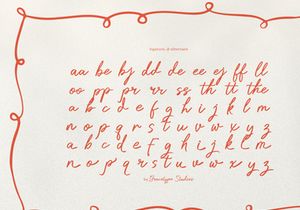 ligatures & alternates
aa be bj dd de ee ej ff ll
oo pp pr rr ss th tt the
a b c d e f g h i j k l m
n o p q r s t u v w x y z
a b c d e f g h i j k l m
n o p q r s t u v w x y z